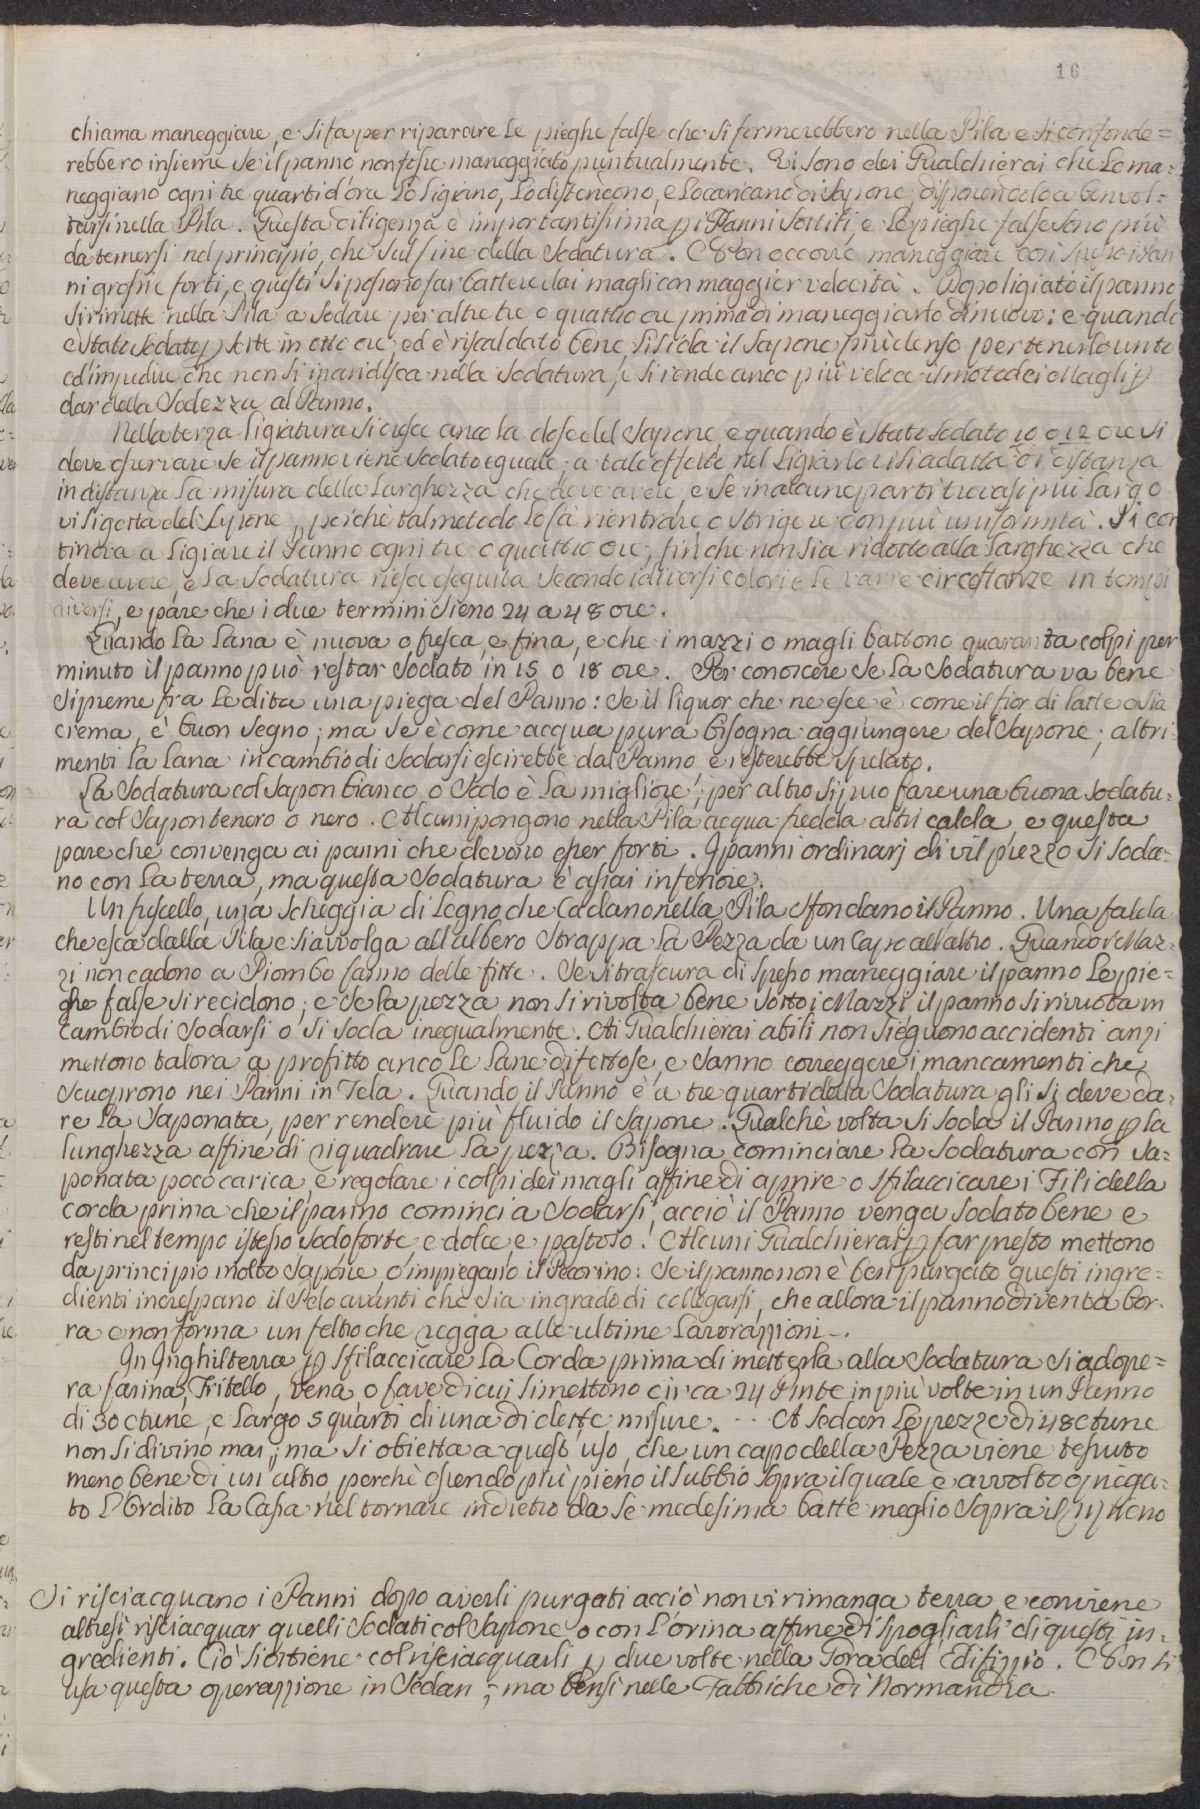 16
chiama maneggiare, e si fa per riparare le pieghe false che si formerebbero nella Pila e si confonde=
rebbero insieme se il panno non fosse maneggiato puntualmente. Vi sono dei Gualchierai che lo ma=
neggiano ogni tre quarti d'ora lo ligiano, lo distendono, e lo caricano di Sapone, disponendolo a ben vol=
tarsi nella Pila. Questa diligenza è importantissima pi Panni sottili, e le pieghe false sono più
da temersi nel principio, che sul fine della Sodatura. Non occorre maneggiare così spesso i Pan
ni grossi e forti, e questi si possono far battere dai magli con maggior velocità. Dopo ligiato il panno
si rimette nella Pila a sodare per altre tre o quattro ore prima di maneggiarlo di nuovo: e quando
è stato sodato p sette in otto ore, ed è riscaldato bene, si li da il Sapone più denso per tenerlo unto
ed impedire che non si inaridisca nella Sodatura, e si rende anco più veloce il moto dei Magli p
dar della Sodezza al Panno.
Nella terza ligiatura si cresce anco la dose del Sapone, e quando è stato sodato 10 o 12 ore si
deve osservare se il panno viene sodato eguale; a tale effetto nel ligiarlo vi si adatta di distanza
in distanza la misura della larghezza che deve avere, e se in alcune parti trovasi più largo
vi si getta del Sapone, perchè tal metodo lo fà rientrare o strigere con più uniformità. Si con
tinova a ligiare il Panno ogni tre o quattro ore, finchè non sia ridotto alla larghezza che
deve avere, e la Sodatura riesce eseguita secondo i diversi colori e le varie circostanze in tempi
diversi, e pare che i due termini sieno 24 a 48 ore.
Quando la lana è nuova o fresca, e fina, e che i mazzi o magli battono quaranta colpi per
minuto il panno può restar sodato in 15 o 18 ore. Per conoscere se la Sodatura va bene
si preme fra le dita una piega del Panno: se il liquor che ne esce è come il fior di latte o sia
crema, è buon segno; ma se è come acqua pura bisogna aggiungere del Sapone; altri=
menti la lana in cambio di sodarsi escirebbe dal Panno e resterebbe spelato.
La Sodatura col Sapon bianco o Sodo è la migliore; per altro si può fare una buona sodatu=
ra col Sapon tenero o nero. Alcuni pongono nella Pila acqua fredda altri calda, e questa
pare che convenga ai panni che devono esser forti. I panni ordinarj di vil prezzo si soda=
no con la terra, ma questa Sodatura è assai inferiore.
Un fuscello, una scheggia di legno che cadano nella Pila sfondano il Panno. Una falda
che esca dalla Pila e si avvolga all'albero strappa la Pezza da un capo all'altro. Quando i Maz=
zi non cadono a Piombo fanno delle fitte. Se si trascura di spesso maneggiare il panno le pie=
ghe false si recidono; e se la pezza non si rivolta bene sotto i Mazzi il panno si rivuota in
cambio di sodarsi o si soda inegualmente. Ai Gualchierai abili non sieguono accidenti anzi
mettono talora a profitto anco le lane difettose, e sanno correggere i mancamenti che
scuoprono nei Panni in Tela. Quando il Panno è a tre quarti della Sodatura gli si deve da=
re la Saponata, per rendere più fluido il Sapone. Qualchè volta si soda il Panno p la
lunghezza affine di riquadrare la pezza. Bisogna cominciare la sodatura con Sa=
ponata poco carica, e regolare i colpi dei magli affine di aprire o sfilaccicare i Fili della
corda prima che il panno cominci a Sodarsi, acciò il Panno venga sodato bene e
resti nel tempo istesso sodo forte, e dolce, e pastoso. Alcuni Gualchierai p far presto mettono
da principio molto Sapone, o impiegano il Pecorino: Se il panno non è ben purgato questi ingre=
dienti increspano il Pelo avanti che sia in grado di collegarsi, che allora il panno diventa bor=
ra e non forma un feltro che regga alle ultime lavorazzioni.
In Inghilterra p sfilaccicare la Corda prima di metterla alla Sodatura si adope=
ra farina, Tritello, Vena, o fave di cui si mettono circa 24 Pinte in più volte in un Panno
di 30 Aune, e largo 5 quarti di una di dette misure. -- A Sedan le pezze di 48 Aune
non si divino mai; ma si obietta a quest'uso, che un capo della Pezza viene tessuto
meno bene di un altro, perchè essendo più pieno il Subbio sopra il quale è avvolto o piega=
to l'Ordito la Cassa nel tornare indietro da se medesima batte meglio sopra il ripieno
Si risciacquano i Panni dopo averli purgati acciò non vi rimanga terra e conviene
altresì risciacquar quelli Sodati col Sapone o con l'orina affine di spogliarli di questi in=
gredienti. Ciò si ottiene col risciacquarli p due volte nella Gora dell'Edifizzio. Non si
usa questa operazzione in Sedan; ma bensì nelle Fabbriche di Normandia